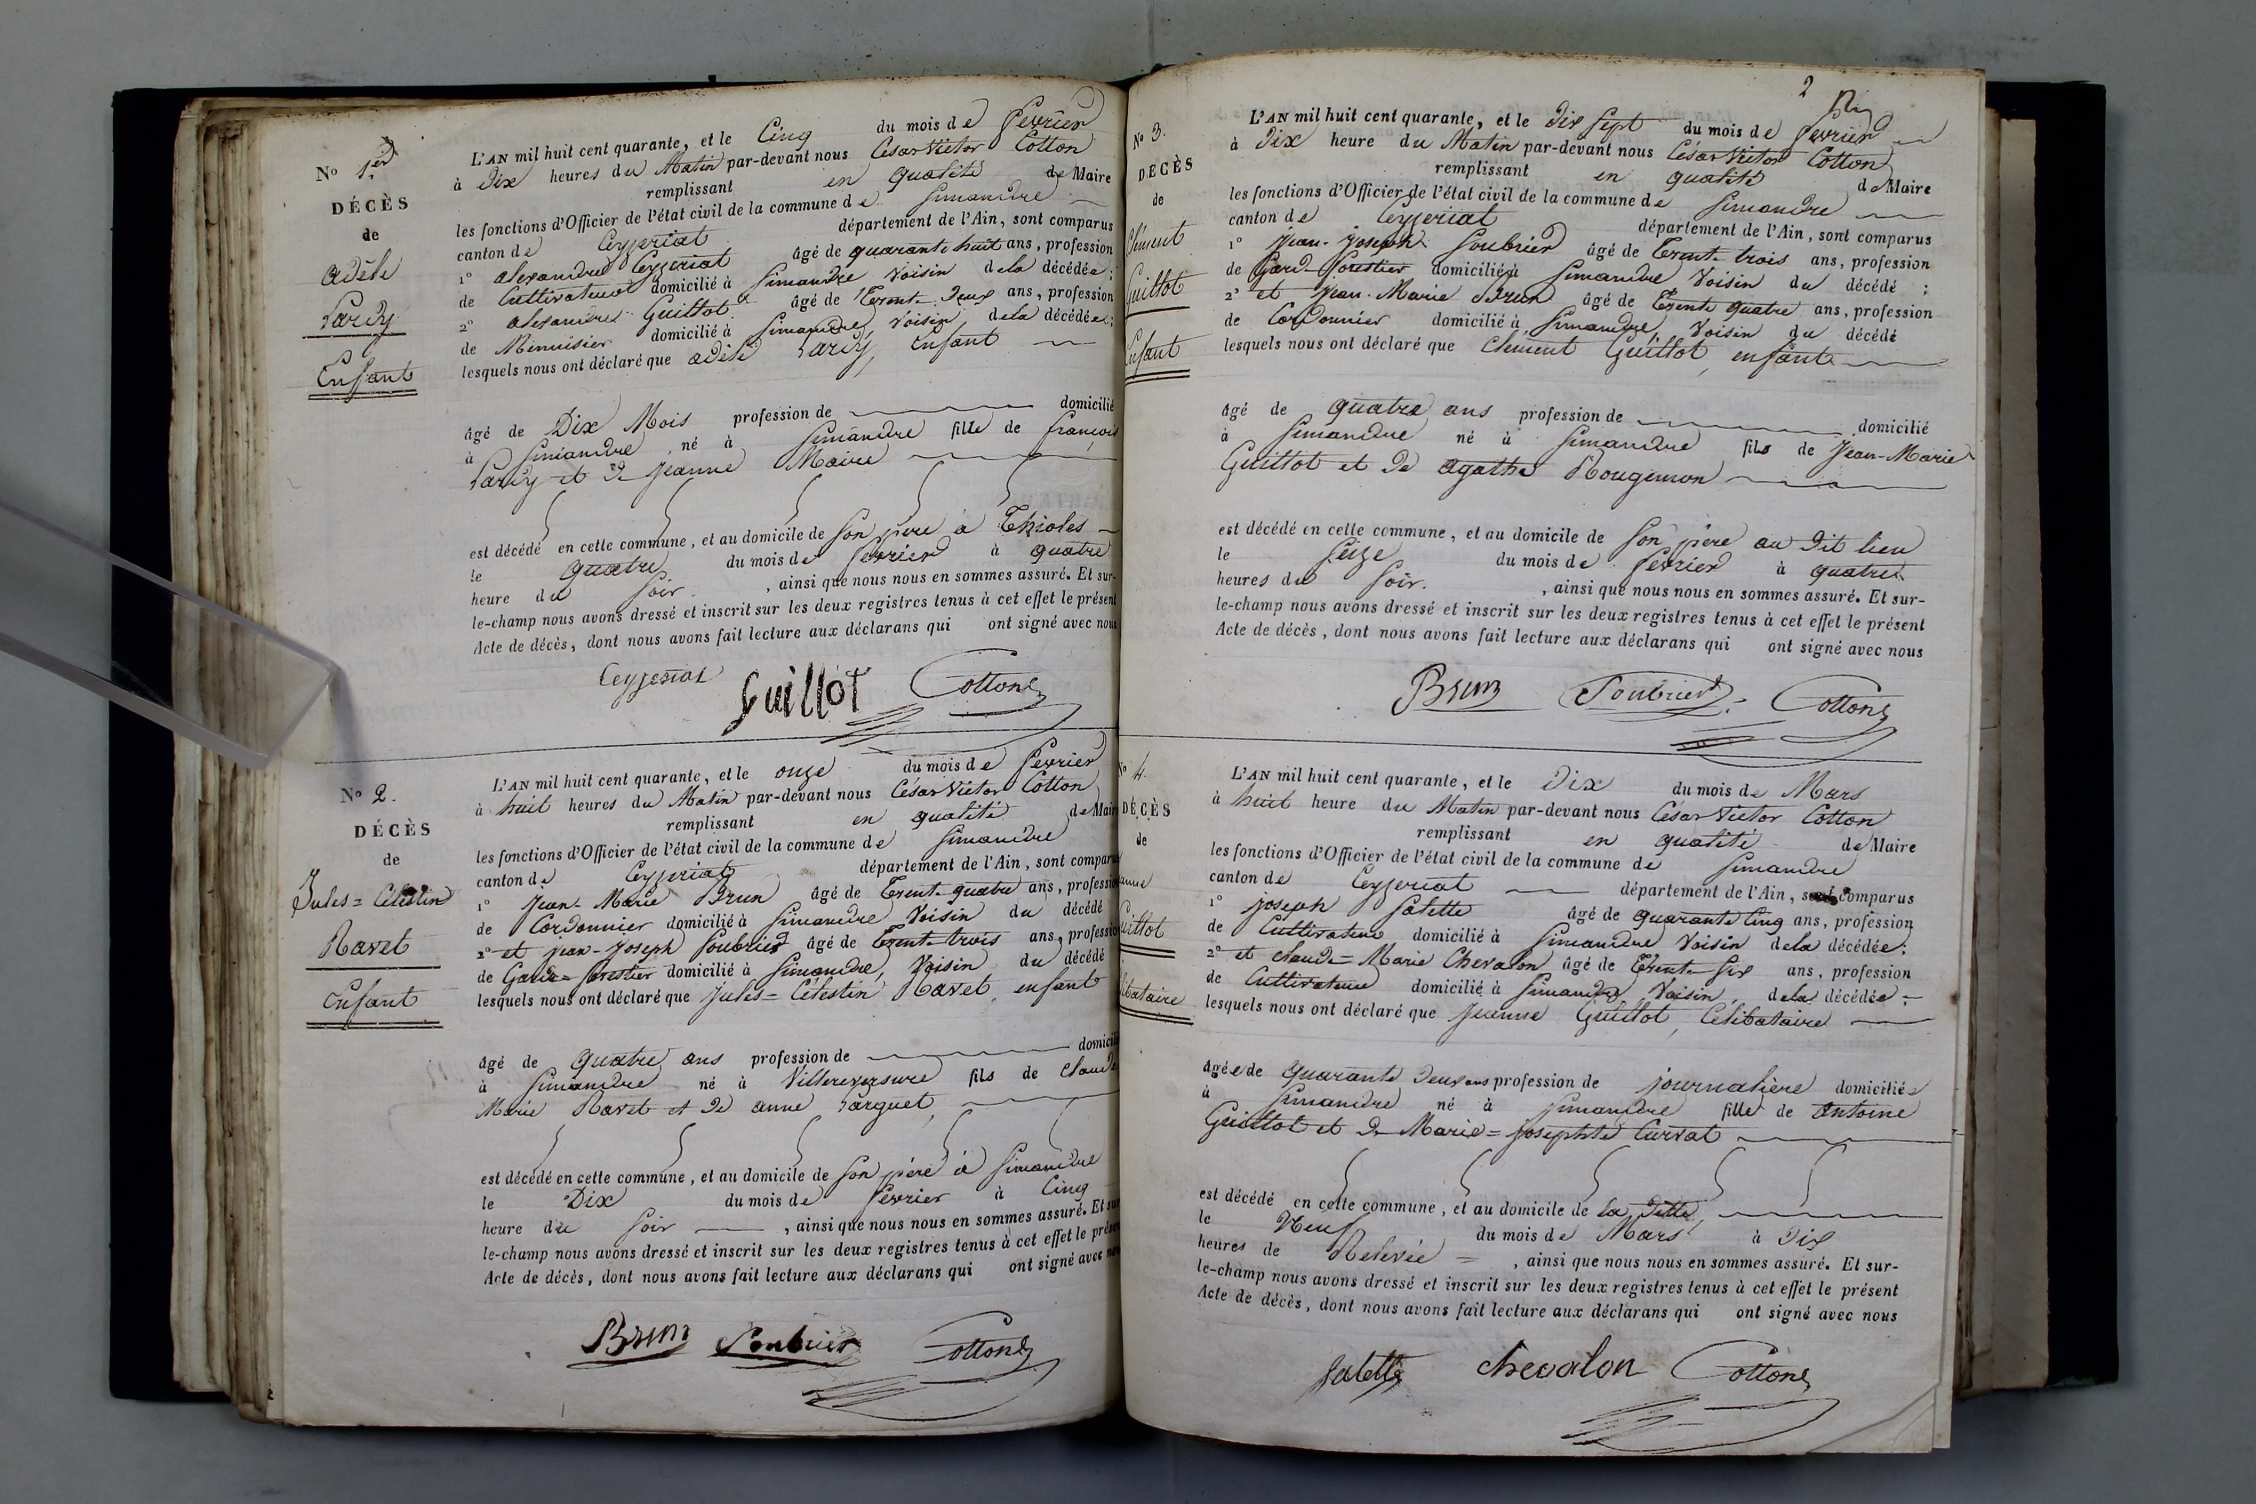 No 1er
DÉCÈS
de
Adèle
Pardy
Enfant
L'AN mil huit cent quarante, et le Cinq du mois de Fevrier
à Dix heures du Matin par-devant nous César Victor Cotton
remplissant en qualité de Maire
les fonctions d'Officier de l'état civil de la commune de Simandre
canton de Ceyzeriat département de l'Ain, sont comparus
1° alexandre Ceyzeriat âgé de quarante huit ans, profession
de Cultivateur domicilié à Simandre Voisin de la décédée;
2° alexandre Guillot âgé de Trente Deux ans, profession
de Menuisier domicilié à Simandre, Voisin de la décédée;
lesquels nous ont déclaré que adèle Pardy, Enfant
âgé de Dix Mois profession de domicilié
à Simandre né à Simandre fille de françois
Pardy et de Jeanne Maire
est décédé en cette commune, et au domicile de Son père à Thioles
le quatre du mois de fevrier à quatre
heure du Soir, ainsi que nous nous en sommes assuré. Et sur-
le-champ nous avons dressé et inscrit sur les deux registres tenus à cet effet le présent
Acte de décès, dont nous avons fait lecture aux déclarans qui ont signé avec nous
Ceyzeriat Guillot Cotton
No 2.
DÉCÈS
de
Jules=Célestin
Ravet
Enfant
L'AN mil huit cent quarante, et le onze du mois de Fevrier
à huit heures du Matin par-devant nous César Victor Cotton
remplissant en qualité de Maire
les fonctions d'Officier de l'état civil de la commune de Simandre
canton de Ceyzeriat département de l'Ain, sont comparus
1° Jean-Marie Brun âgé de Trente quatre ans, profession
de Cordonnier domicilié à Simandre Voisin du décédé
2° et jean-Joseph Soubrier âgé de Trente trois ans, profession
de Garde=forestier domicilié à Simandre, Voisin du décédé
lesquels nous ont déclaré que Jules=Célestin Ravet, enfant
âgé de quatre ans profession de domicilié
à Simandre né à Villereversure fils de Claude
Marie Ravet et de anne Parguet,
est décédé en cette commune, et au domicile de Son père à Simandre
le Dix du mois de fevrier à Cinq
heure du Soir, ainsi que nous nous en sommes assuré. Et sur
le-champ nous avons dressé et inscrit sur les deux registres tenus à cet effet le présent
Acte de décès, dont nous avons fait lecture aux déclarans qui ont signé avec nous
Brun Soubrier Cotton
2
No 3.
DÉCÈS
de
Clément
Guillot
Enfant
L'AN mil huit cent quarante, et le dix Sept du mois de Fevrier
à Dix heure du Matin par-devant nous César Victor Cotton
remplissant en qualité de Maire
les fonctions d'Officier de l'état civil de la commune de Simandre
canton de Ceyzeriat département de l'Ain, sont comparus
1° Jean-Joseph Soubrier âgé de Trente trois ans, profession
de Gard-forestier domicilié à Simandre Voisin du décédé;
2° et Jean-Marie Brun âgé de Trente quatre ans, profession
de Cordonnier domicilié à Simandre, Voisin du décédé
lesquels nous ont déclaré que Clement Guillot, enfant
âgé de quatre ans profession de domicilié
à Simandre né à Simandre fils de Jean-Marie
Guillot et de agathe Rougemon
est décédé en cette commune, et au domicile de Son père au dit lieu
le Seize du mois de fevrier à quatre
heures du Soir., ainsi que nous nous en sommes assuré. Et sur-
le-champ nous avons dressé et inscrit sur les deux registres tenus à cet effet le présent
Acte de décès, dont nous avons fait lecture aux déclarans qui ont signé avec nous
Brun Soubrier Cotton
No 4.
DÉCÈS
de
anne
Guillot
libataire
L'AN mil huit cent quarante, et le Dix du mois de Mars
à huit heure du Matin par-devant nous César Victor Cotton
remplissant en qualité de Maire
les fonctions d'Officier de l'état civil de la commune de Simandre
canton de Ceyzeriat département de l'Ain, sont comparus
1° Joseph Salette âgé de quarante Cinq ans, profession
de Cultivateur domicilié à Simandre Voisin de la décédée:
2° et Claude=Marie Chevalon âgé de Trente-Six ans, profession
de Cultivateur domicilié à Simandre, Voisin, de la décédée;
lesquels nous ont déclaré que Jeanne Guillot, Célibataire
âgée de quarante Deux ans profession de journalière domiciliée
à Simandre né à Simandre fille de antoine
Guillot et de Marie=Josephte Curvat
est décédé en cette commune, et au domicile de la Ditte,
le Neuf du mois de Mars à Dix
heures de Relevée =, ainsi que nous nous en sommes assuré. Et sur-
le-champ nous avons dressé et inscrit sur les deux registres tenus à cet effet le présent
Acte de décès, dont nous avons fait lecture aux déclarans qui ont signé avec nous
Salette Chevalon Cotton